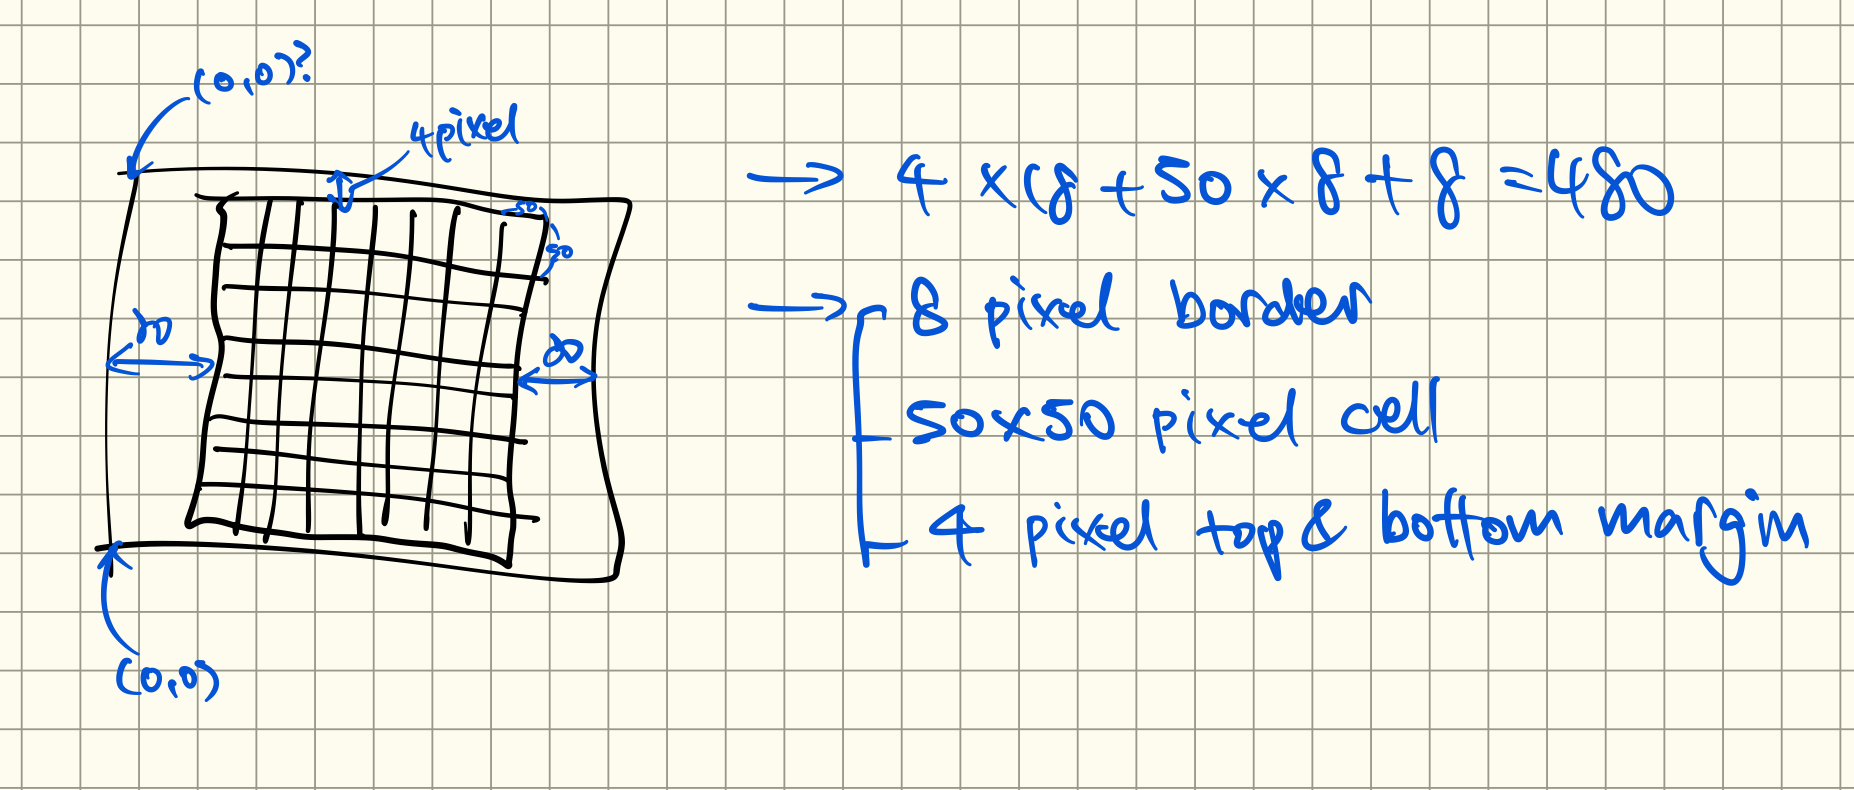 (0,0)?
4 pixel
50
50
80
80
(0,0)
→ 4 x 18 + 50 x 8 + 8 = 480
→ 8 pixel border
50x50 pixel cell
4 pixel top & bottom margin